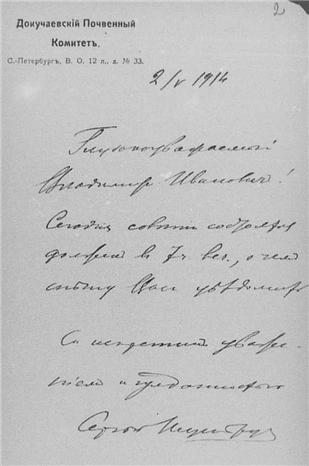 2
Докучаевскій Почвенный
Комитетъ.
С.-Петербургъ, В. О. 12 л., д. № 33.
2/V 1914
Глубокоуважаемый
Владимир Иванович!
Сегодня собраться
должен в 7 ч. веч., о чем
спешу Вас уведомить
С искренним уваже-
нием и преданностью
Сергей